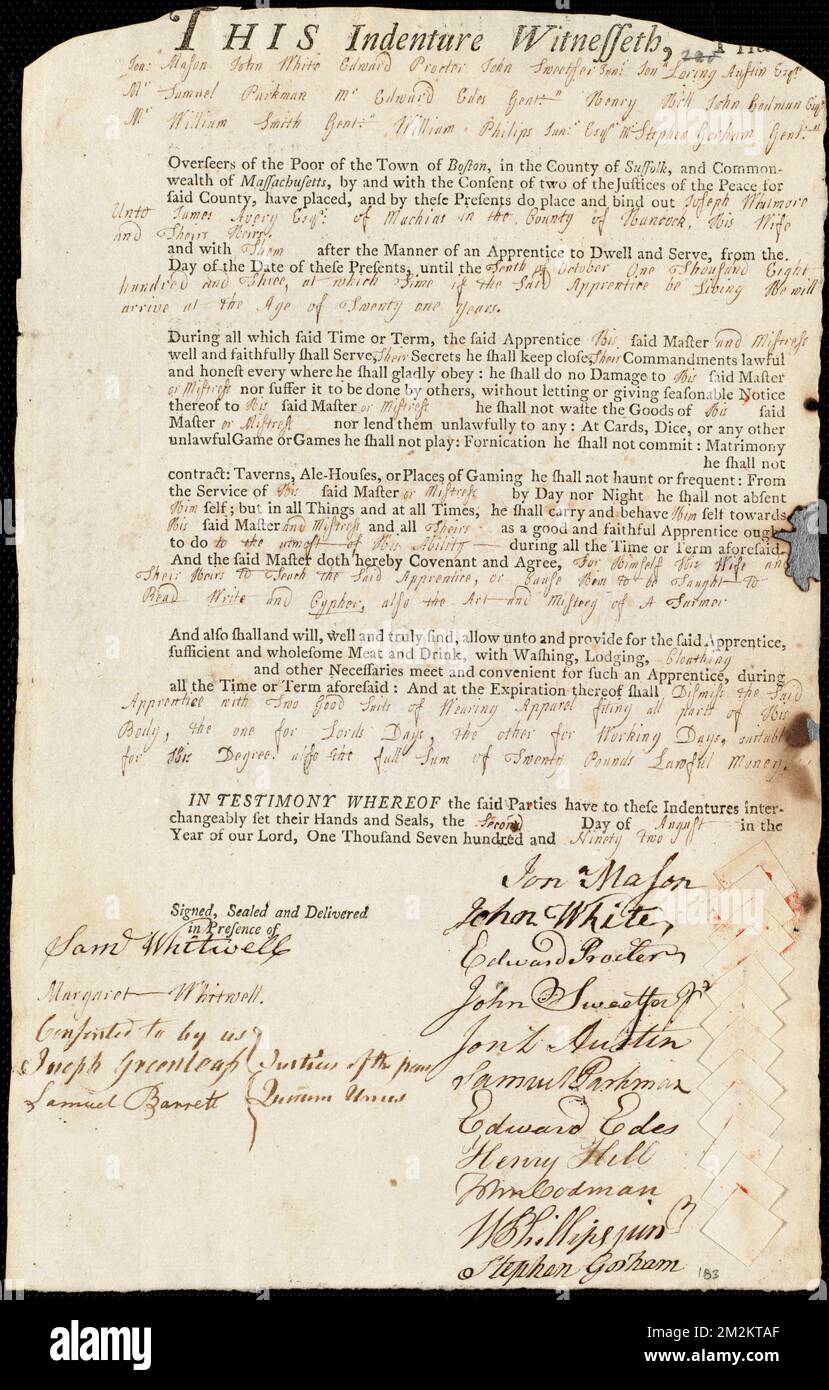 THIS Indenture Witnesseth, Tha
Jon.ª Mason John White Edward Procter John Sweetser Jun.r Jon.ª Loring Austin Esq.rs
M.r Samuel Parkman M.r Edward Edes Gent.n Henry Hill John Codman Esq.rs
M.r William Smith Gent.n William Philips Jun.r Esq.r M.r Stephen Gorham Gent.n all
Overseers of the Poor of the Town of Boston, in the County of Suffolk, and Common-
wealth of Massachusetts, by and with the Consent of two of the Justices of the Peace for
said County, have placed, and by these Presents do place and bind out Joseph Whitmore
Unto James Avery Esq.r of Machias in the County of Hancock, His Wife
and Theirs Heirs,
and with Them after the Manner of an Apprentice to Dwell and Serve, from the
Day of the Date of these Presents, until the Tenth of October One Thousand Eight
hundred and Three, at which Time if the Said Apprentice be Living He will
arrive at the Age of Twenty one Years.
During all which said Time or Term, the said Apprentice His said Master and Mistress
well and faithfully shall Serve, Their Secrets he shall keep close, Their Commandments lawful
and honest every where he shall gladly obey: he shall do no Damage to His said Master
or Mistress nor suffer it to be done by others, without letting or giving seasonable Notice
thereof to His said Master or Mistress he shall not waste the Goods of His said
Master or Mistress nor lend them unlawfully to any: At Cards, Dice, or any other
unlawful Game or Games he shall not play: Fornication he shall not commit: Matrimony
he shall not
contract: Taverns, Ale-Houses, or Places of Gaming he shall not haunt or frequent: From
the Service of His said Master or Mistress by Day nor Night he shall not absent
Him self; but in all Things and at all Times, he shall carry and behave Him self towards
His said Master and Mistress and all Theirs as a good and faithful Apprentice ought
to do to the utmost of His Ability during all the Time or Term aforesaid.
And the said Master doth hereby Covenant and Agree, For Himself His Wife and
Their Heirs to Teach the Said Apprentice, or Cause Him to be Taught to
Read Write and Cypher, also the Art and Mistery of A Farmer
And also shall and will, well and truly find, allow unto and provide for the said Apprentice,
sufficient and wholesome Meat and Drink, with Washing, Lodging, Cloathing
and other Necessaries meet and convenient for such an Apprentice, during
all the Time or Term aforesaid: And at the Expiration thereof shall Dismiss the Said
Apprentice with Two Good Suits of Wearing Apparel fiting all parts of His
Body, the one for Lords Days, the other for Working Days, suitable
for His Degree. also the full Sum of Twenty Pounds Lawful Money.
IN TESTIMONY WHEREOF the said Parties have to these Indentures inter-
changeably set their Hands and Seals, the Second Day of August in the
Year of our Lord, One Thousand Seven hundred and Ninety two
Signed, Sealed and Delivered
in Presence of
Sam.l Whitwell
Margaret Whitwell.
Consented to by us
Joseph Greenleaf Justices of the peace
Samuel Barrett Quorum Unus
Jon.ª Mason
John White,
Edward Procter
John Sweetser Jr
Jon L Austin
Samuel Parkman
Edward Edes
Henry Hill
John Codman
W Phillips jun.r
Stephen Gorham
183
alamy
alamy
Image ID: 2M2KTAF
www.alamy.com